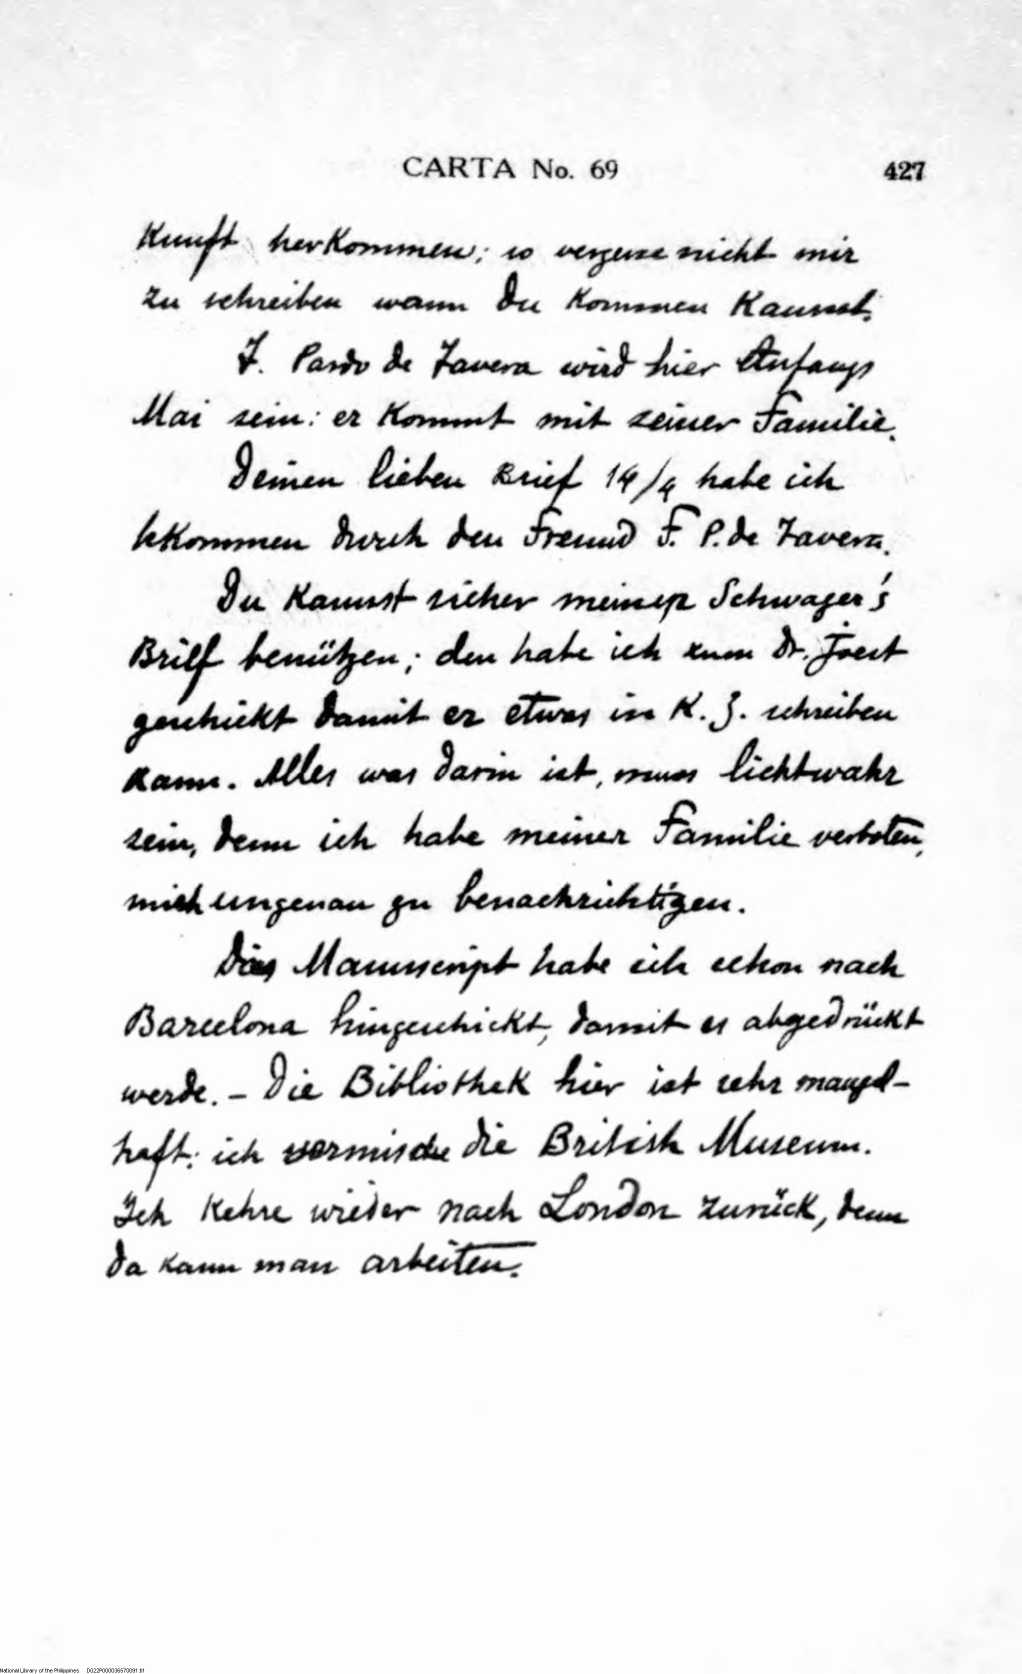 CARTA No. 69 427
Kunft herkommen; so vergesse nicht mir
zu schreiben wann Du kommen kannst.
T. Pardo de Tavera wird hier Anfangs
Mai sein: er kommt mit seiner Familie.
Deinen lieben Brief 14/4 habe ich
bekommen durch den Freund F. P. de Tavera.
Du kannst sicher meines Schwager's
Brief benützen; den habe ich zum Dr. Joest
geschickt damit er etwas in K. Z. schreiben
kann. Alles was darin ist, muss lichtwahr
sein, denn ich habe meiner Familie verboten,
mich ungenau zu benachrichtigen.
Das Manuscript habe ich schon nach
Barcelona hingeschickt, damit es abgedrückt
werde. – Die Bibliothek hier ist sehr mangel-
haft: ich vermische die British Museum.
Ich kehre wieder nach London zurück, denn
da kann man arbeiten.
National Library of the Philippines